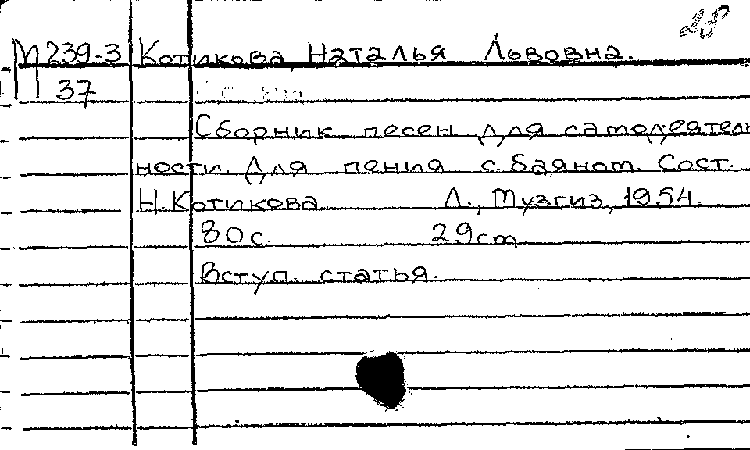 М239-3 Котикова, Наталья Львовна.
37
Сборник песен для самодеятель
ности. Для пения с баяном. Сост.
Н. Котикова. Л., Музгиз, 1954.
80с. 29cm
Вступ. статья.